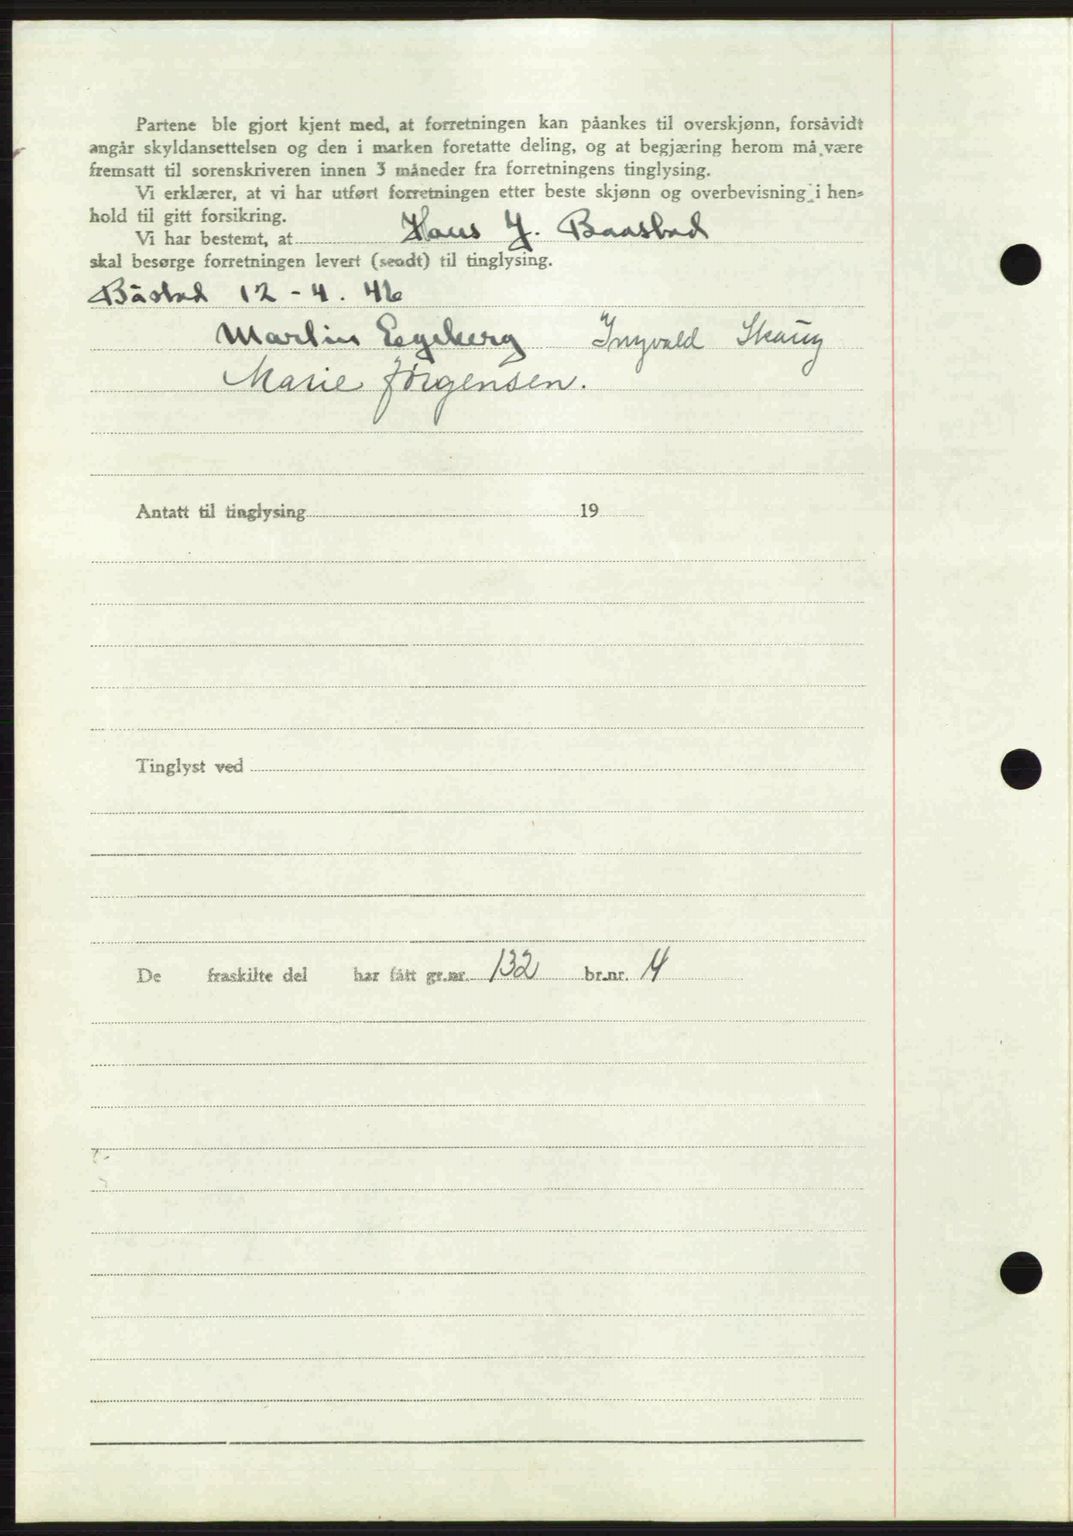 Partene ble gjort kjent med, at forretningen kan påankes til overskjønn, forsåvidt
angår skyldansettelsen og den i marken foretatte deling, og at begjæring herom må være
fremsatt til sorenskriveren innen 3 måneder fra forretningens tinglysing.
Vi erklærer, at vi har utført forretningen etter beste skjønn og overbevisning i hen-
hold til gitt forsikring.
Vi har bestemt, at Hans J. Baastad
skal besørge forretningen levert (sendt) til tinglysing.
Båstad 12 - 4. 46
Martin Egeberg Ingvald Skaug
Marie Jørgensen.
Antatt til tinglysing 19
Tinglyst ved
De fraskilte del har fått gr.nr. 132 br.nr. 4